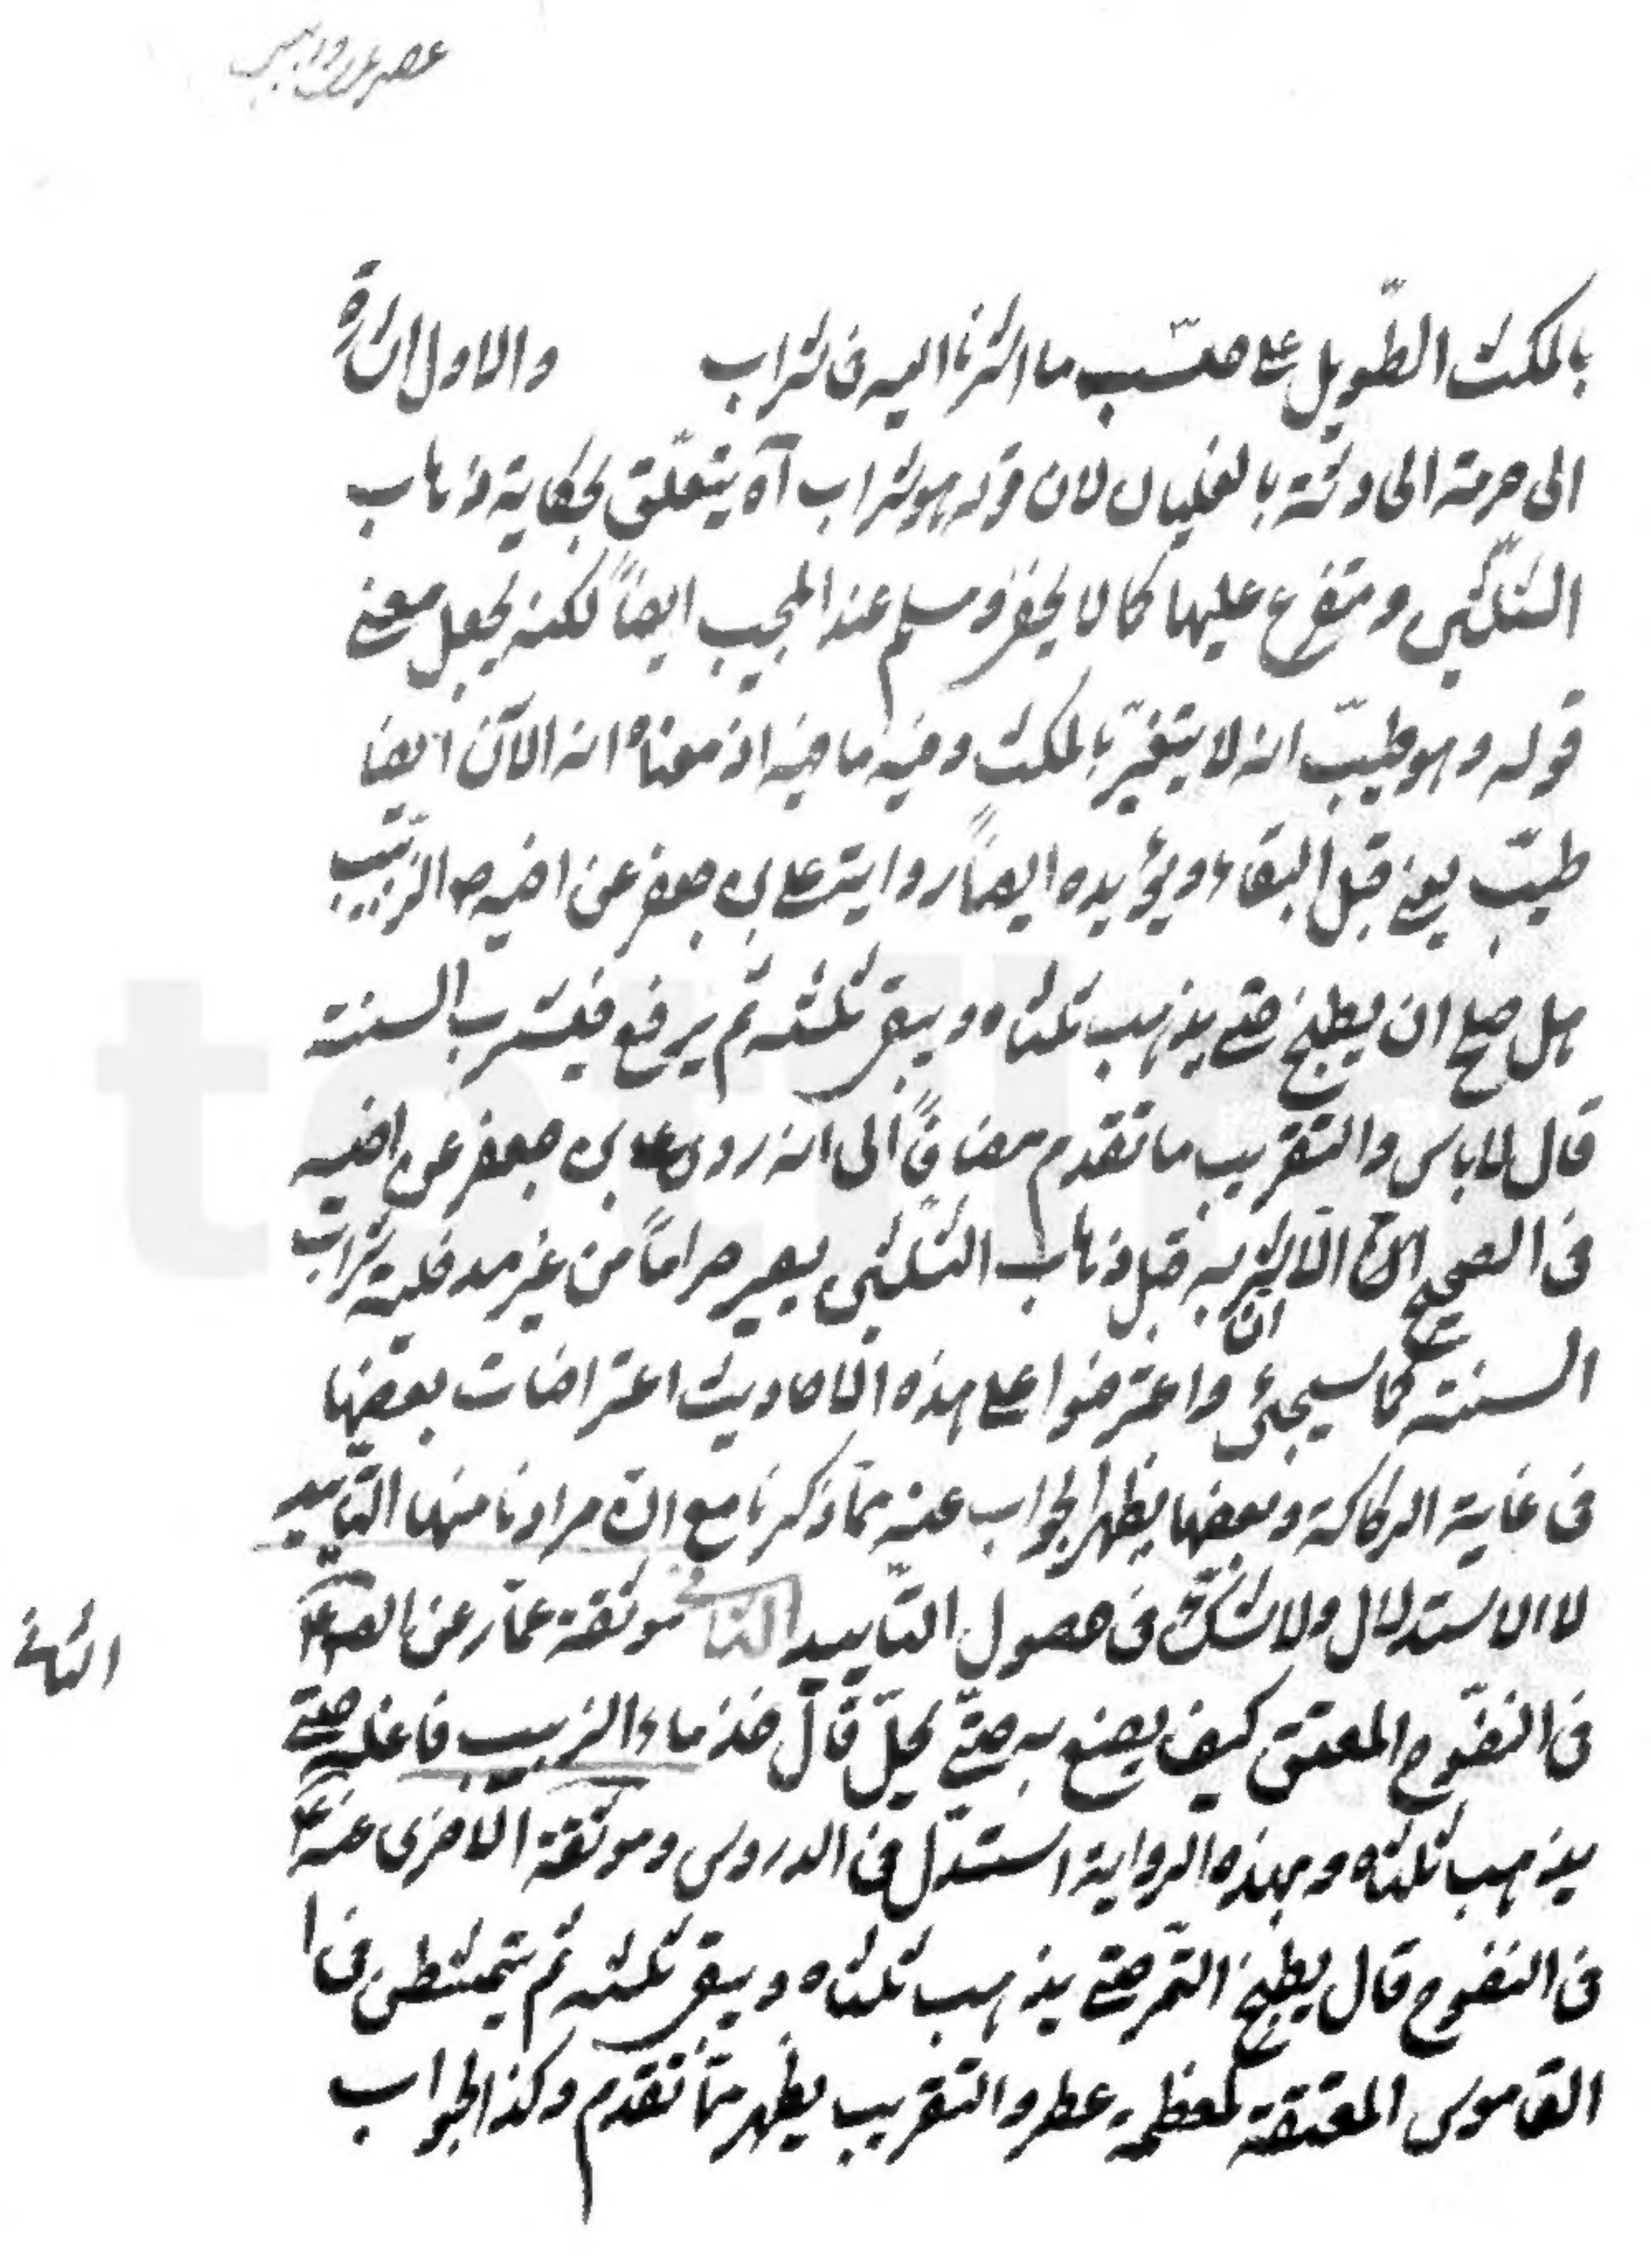 بالمكث الطّويل على حسب ما اشرنا اليه فى شراب والاول اشارة
الى حرمته الحادثة بالغليان لان قوله هو شراب آه يتعلّق بحكاية ذهاب
الثلثين ومتفرع عليها كما لا يخفى ومسلم عند المجيب ايضاً لكنه يجعل معنى
قوله وهو طيّب انه لا يتغيّر بالمكث وفيه ما فيه اذ معناه انه الآن ايضا
طيّب يعنى قبل البقاء ويؤيده ايضاً رواية على بن جعفر عن اخيه ع الزبيب
هل صلح ان يطبخ حتى يذهب ثلثاه ويبقى ثلثه ثم يرفع فيشرب السنة
قال لا باس والتقريب ما تقدم مضافاً الى انه روى على بن جعفر عن اخيه
فى الصحيح ان الاشربه قبل ذهاب الثلثين يصير حراماً من غير مدخلية شراب
السنة كما سيجئ واعترضوا على هذه الاحاديث اعتراضات بعضها
فى غاية الركاكة وبعضها يظهر الجواب عنه مما ذكرنا مع ان مرادنا منها التاييد
لا الاستدلال ولا شكّ فى حصول التاييد موثقة عمّار عن الص ع
فى النضوح المعتق كيف يصنع به حتى يحلّ قال خذ ماء الزبيب فاغله حتى
يذهب ثلثاه وبهذه الرواية استدلّ فى الدروس وموثقة الاخرى عنه ع
فى النضوح قال يطبخ التمر حتى يذهب ثلثاه ويبقى ثلثه ثم يتمشطن فى ا
القاموس المعتقة كمعظمة عطر والتقريب يظهر ممّا تقدم وكذا الجواب